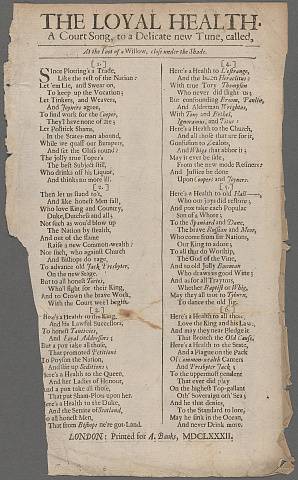 THE LOYAL HEALTH.
A Court Song, to a Delicate new Tune, called,
At the foot of a Willow, close under the Shade.
[1.]
Since Plotting's a Trade,
Like the rest of the Nation:
Let 'em Lie, and Swear on,
To keep up the Vocation;
Let Tinkers, and Weavers,
And Joyners agree,
To find work for the Cooper,
They'l have none of me;
Let Politick Shams,
In the States-men abound,
While we quaff our Bumpers,
And set the Glass round:
The jolly true Toper's
The best Subject still,
Who drinks off his Liquor,
And thinks no more ill.
[2.]
Then let us stand to't,
And like honest Men fall,
Who love King and Country,
Duke, Dutchess and all;
Not such as would blow up
The Nation by stealth,
And out of the flame
Raise a new Common-wealth:
Nor such, who against Church
And Bishops do rage,
To advance old Jack Presbyter,
On the new Stage.
But to all honest Tories,
Who'l fight for their King,
And to Crown the brave Work,
With the Court wee'l begin.
[3.]
Here's a Health to the King,
And his Lawful Successors,
To honest Tantivies,
And Loyal Addressers;
But a pox take all those,
That promoted Petitions
To Poyson the Nation,
And stir up Seditions;
Here's a Health to the Queen,
And her Ladies of Honour,
and a pox take all those,
That put Sham-Plots upon her.
Here's a Health to the Duke,
And the Senate of Scotland,
to all honest Men,
That from Bishops ne're got Land.
[4.]
Here's a Health to L'estrange,
And the boon Heraclitus;
With true Tory Thompson
Who never did slight us;
But confounding Froom,
And Alderman
With Tony and
Ignoramus, and
Here's a Health to the Church,
And all those that are for it,
Confusion to Zealots,
And Whigs that abhor it:
May it ever be safe,
From the new mode Refiners;
And Justice be done
Upon Coopers and Joyners.
[5.]
Here's a Health to old Hall
Who our joys did restore;
And pox take each Popular
Son of a Whore;
To the Spaniard and Dane,
The brave Russian and Moor,
Who come from far Nations,
Our King to adore;
To all that do Worship,
The God of the Vine,
And to old Jolly Bowman
Who draws us good Wine:
And as for all Traytors,
Whether Baptist or Whig,
May they all trot to Tyburn,
To dance the old Jig.
[6.]
Here's a Health to all those,
Love the King and his Law,
And may they neer Pledge it
That Broach the Old Cause,
Here's a Health to the State,
And a Plague on the Pack
Of Common-wealth Canters
And Presbyter Jack;
To the uppermost pendent
That ever did play
On the highest Top-gallant
Oth' Soveraign oth' Sea;
And he that denies,
To the Standard to lore,
May he sink in the Ocean,
and never Drink more.
LONDON: Printed for A. Banks, MDCLXXXII.